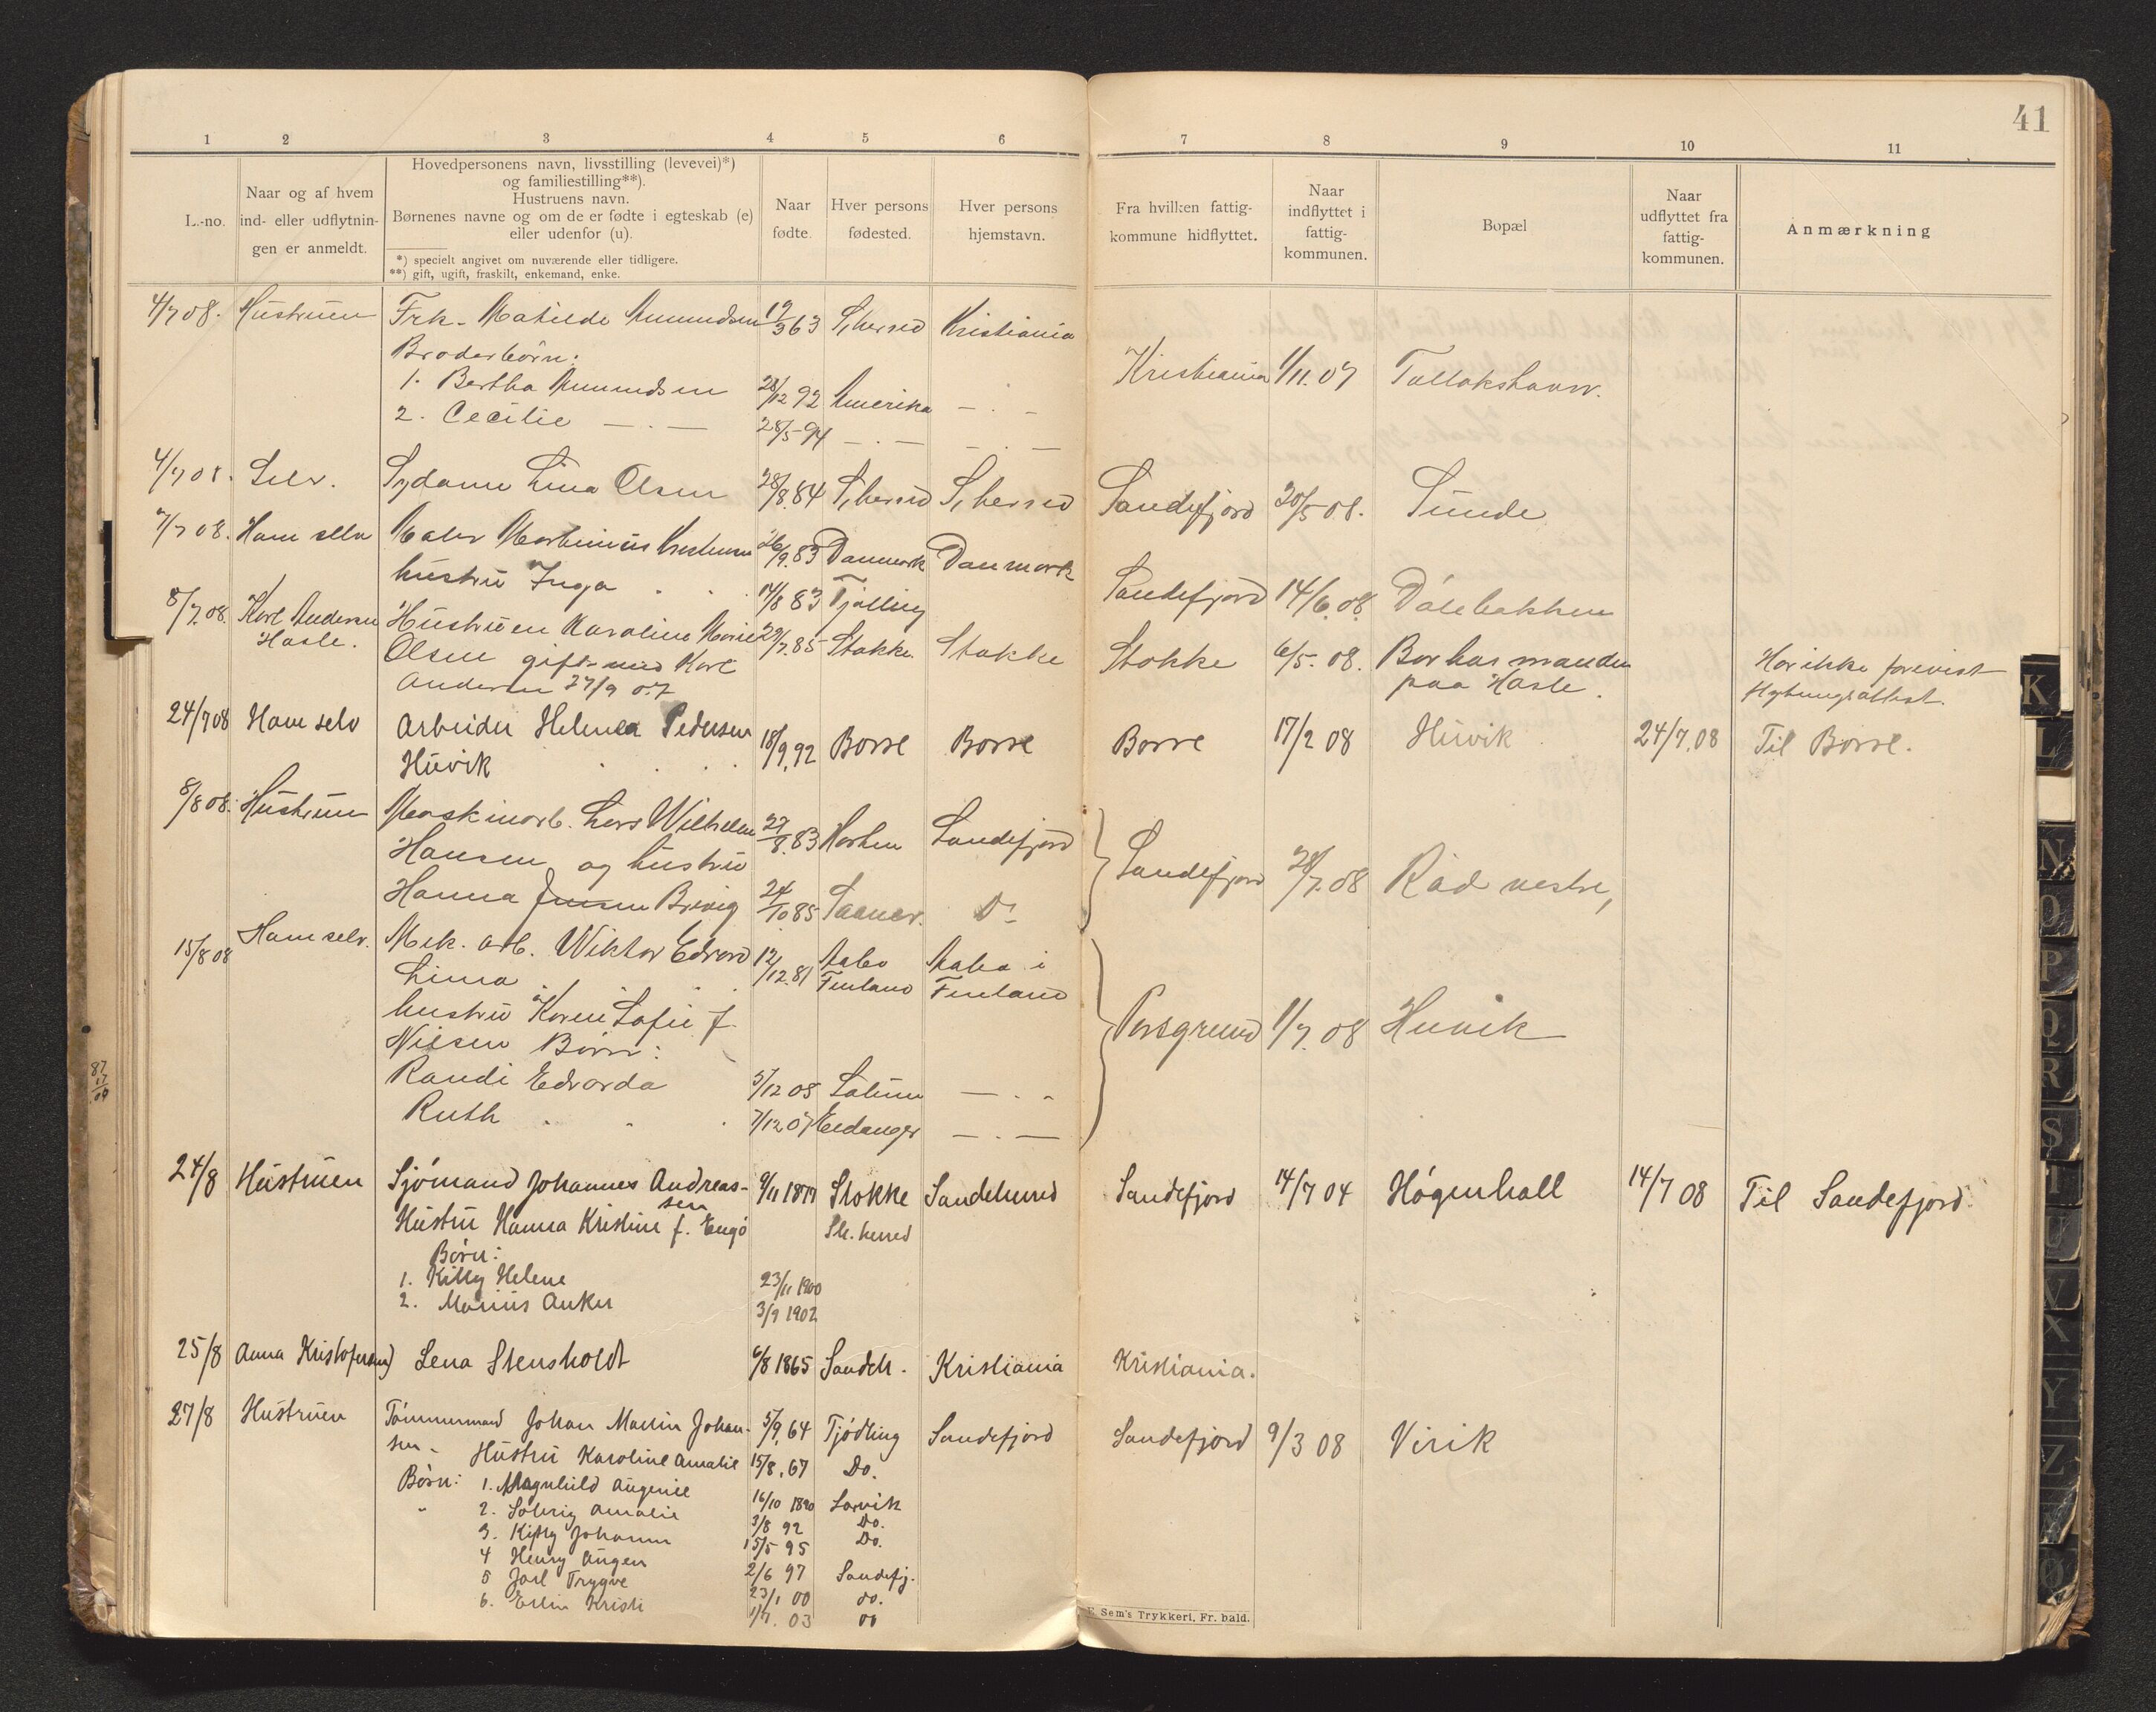 41
1 2 3 4 5 6 7 8 9 10 11
L.-no.
Naar og af hvem
ind- eller udflytnin-
gen er anmeldt.
Hovedpersonens navn, livsstilling (levevei)*)
og familiestilling**).
Hustruens navn.
Børnenes navne og om de er fødte i egteskab (e)
eller udenfor (u).
*) specielt angivet om nuværende eller tidligere.
**) gift, ugift, fraskilt, enkemand, enke.
Naar
fødte.
Hver persons
fødested.
Hver persons
hjemstavn.
Fra hvilken fattig-
kommune hidflyttet.
Naar
indflyttet i
fattig-
kommunen.
Bopæl
Naar
udflyttet fra
fattig-
kommunen.
Anmærkning
4/7 08. Hustruen Frk. Matilde Amundsen 19/3 63 S,herred Kristiania
Broderbørn:
1. Bertha Amundsen 28/12 92 Amerika — . — Kristiania 1/11.07
2. Cecilie — . — 28/5 94 — . — — . —
4/7 08. Selv. Sydame Lina Olsen 28/8.84 S,herred S,herred Sandefjord 20/5 08. Sunde
7/7 08. Ham selv Maler Martinius 26/9.83 Danmark Danmark
hustru Inga . . 14/8 83 Tjølling Sandefjord 14/6.08
8/7.08. Karl Andersen Hustruen Karoline Marie 29/7.85 Stokke Stokke Stokke 6/5.08. Bor hos manden Har ikke forevist
Hasle. Olsen gift med Karl paa Hasle. Flytningsattest.
Andersen 27/9 07
24/7 08 Ham selv Arbeider Pedersen 18/9.92 Borre Borre Borre 17/2 08 Huvik 24/7.08 Til Borre.
Huvik . . .
8/8 08. Hustruen Maskinarb. Lars Wilhelm 27/8.83 Horten Sandefjord
Hansen og hustru Sandefjord 28/7.08 Råd vestre,
Hanna Jensen Brevig 24/10 85 D°
15/8 08 Ham selv. Mek. arb. Wiktor Edvard 12/12.81 Aabo Aabo i
Linna . . . Finland Finland
hustru Karen Sofie f. Porsgrund 1/7.08 Huvik
Nilsen Børn:
Randi Edvarda 5/12 05 Solum — . -
Ruth . . . 7/12 07 Eidanger — . —
24/8 Hustruen Sjømand Johannes Andreas- 9/11 Stokke Sandeherred Sandefjord 14/7 04 Høgenhall 14/7 08 Til Sandefjord.
sen
Hustru Hanna Kristine f. Engø Sh.herred
Børn:
1. Kitty Helene 23/11 1900
2. Marius Anker 3/9 1902
25/8 Anna Kristofersen) Lena Stensholdt 6/8 1865 Sandeh. Kristiania Kristiania.
27/8 Hustruen Tømmermand Johan Martin Johan- 5/9.64 Tjødling Sandefjord Sandefjord 9/3 08 Virik
sen - Hustru Karoline Amalie 15/8.67 Do.
Børn: 1. Magnhild Augenie 16/10 1890 Larvik
" 2. Solveig Amalie 3/8 92 Do.
3. Kitty Johanne 15/5 95 Do.
4 Henry Augen 2/6 97 Sandefj.
5 Jarl Trygve 23/1 00 do.
6. Kristi 1/7. 03 do
Sem's Trykkeri, Fr. hald.
K
L
N
O
P
Q
R
S
T
U
V
X
Y
Z
Æ
Ø